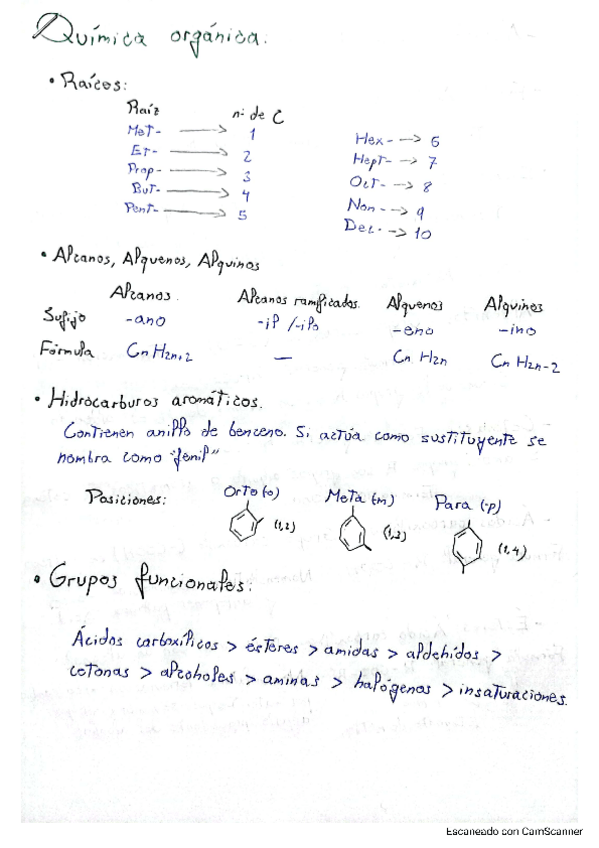 Química orgánica:
• Raíces:
Raíz n° de C
Met- → 1
Et- → 2
Prop- → 3
But- → 4
Pent- → 5
Hex- → 6
Hept- → 7
Oct- → 8
Non- → 9
Dec- → 10
• Alcanos, Alquenos, Alquinos
Alcanos. Alcanos ramificados. Alquenos Alquinos
Sufijo -ano -il/-ilo -eno -ino
Fórmula CnH2n+2 — CnH2n CnH2n-2
• Hidrocarburos aromáticos.
Contienen anillo de benceno. Si actúa como sustituyente se
nombra como "fenil"
Posiciones: Orto (o) Meta (m) Para (-p)
(1,2) (1,3) (1,4)
• Grupos funcionales:
Ácidos carboxílicos > ésteres > amidas > aldehídos >
cetonas > alcoholes > aminas > halógenos > insaturaciones.
Escaneado con CamScanner